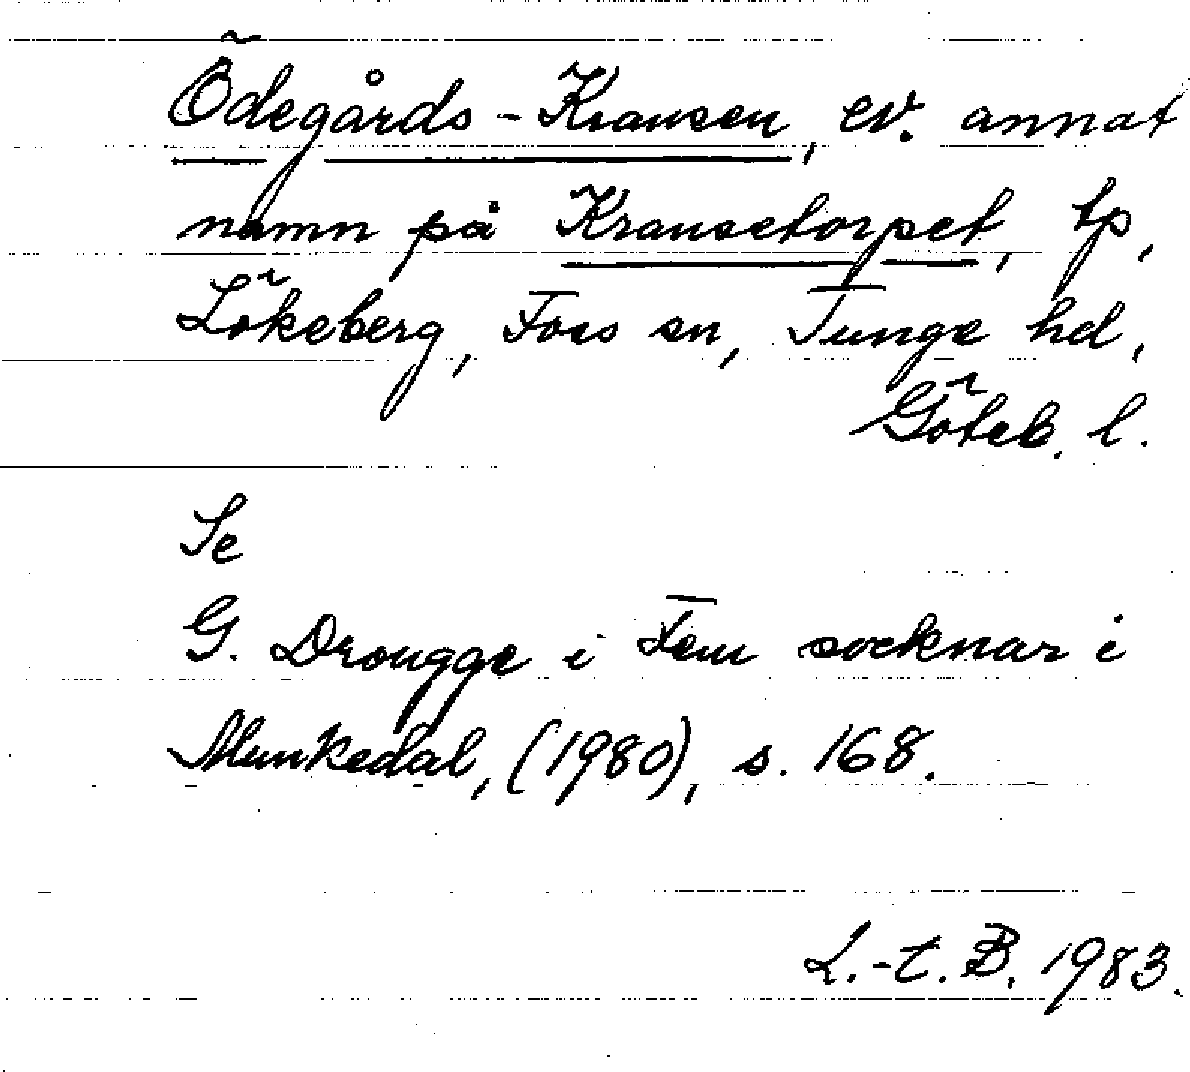 Ödegårds-Kransen, ev. annat
namn på Kransetorpet, tp,
Lökeberg, Foss sn, Tunge hd,
Göteb. l.
Se
G. Drougge i Fem socknar i
Munkedal, (1980), s. 168.
L.-t. B. 1983.